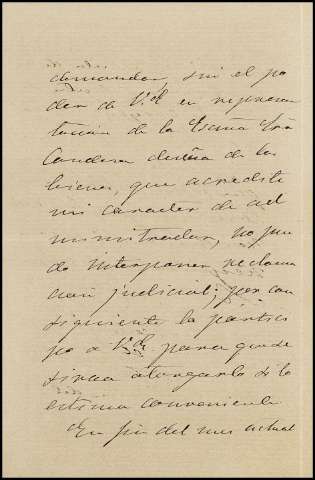 demandar, sin el po
der de Vd en represen
tacion de la Excma Sra
Condesa dueña de los
bienes, que acredite
mi caracter de ad
ministrador, no pue
do interponer reclama
cion judicial; por con
siguiente lo partici
po a Vd para que se
sirva otorgarlo si lo
estima conveniente
En fin del mes actual